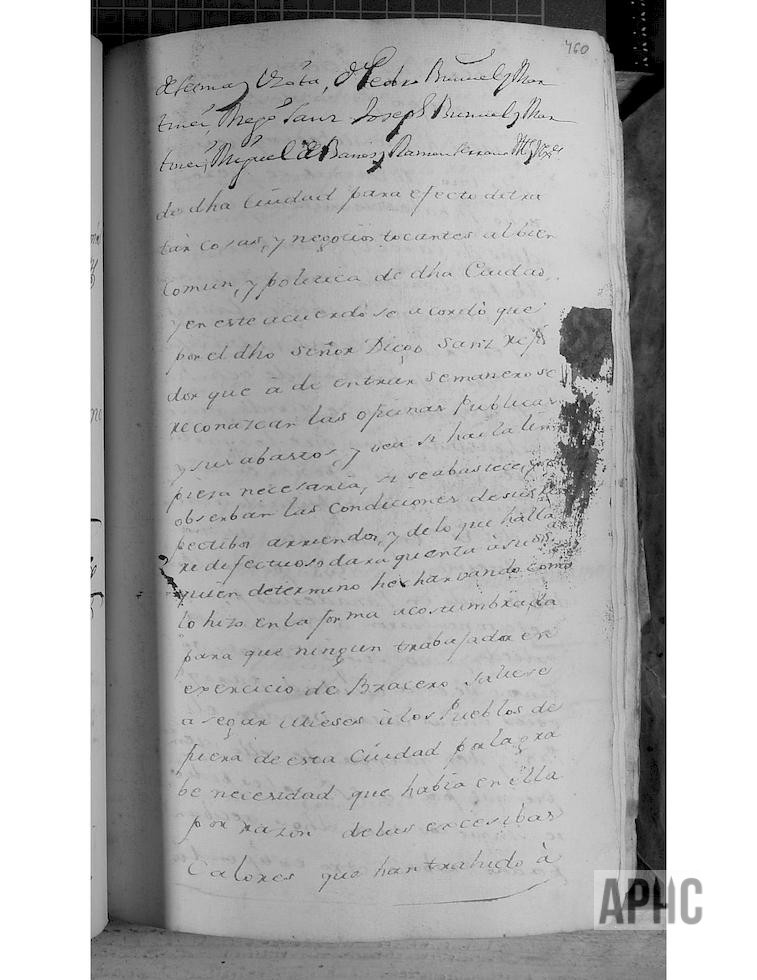 460
de Lerma y Vrōta, Dn Pedro Buñuel y Mar
tinez, Diego Sanz Joseph Buñuel y Mar
tinez, Miguel de Barios y Ramon Serrano
de dha Ciudad para efecto de tra
tar cosas, y negocios tocantes al bien
Comun, y politica de dha Ciudad,
y en este acuerdo se acordò que
por el dho señor Diego Sanz Reji
dor que à de entrar semanero se
reconazcan las oficinas Publicas
y sus abastos, y vea si hai la lim
pieza necesaria, si se abastece, y se
obserban las Condiciones de sus
pectibos arriendos, y de lo que halla
re defectuoso dara quenta à
quien determino hechar vando como
lo hizo en la forma acostumbrada
para que ningun trabajador en
exercicio de Bracero saliese
a segar Mieses à los Pueblos de
fuera de esta Ciudad por la gra
be necesidad que habia en ella
por razon de las excesibas
Calores que han trahido à
APHC